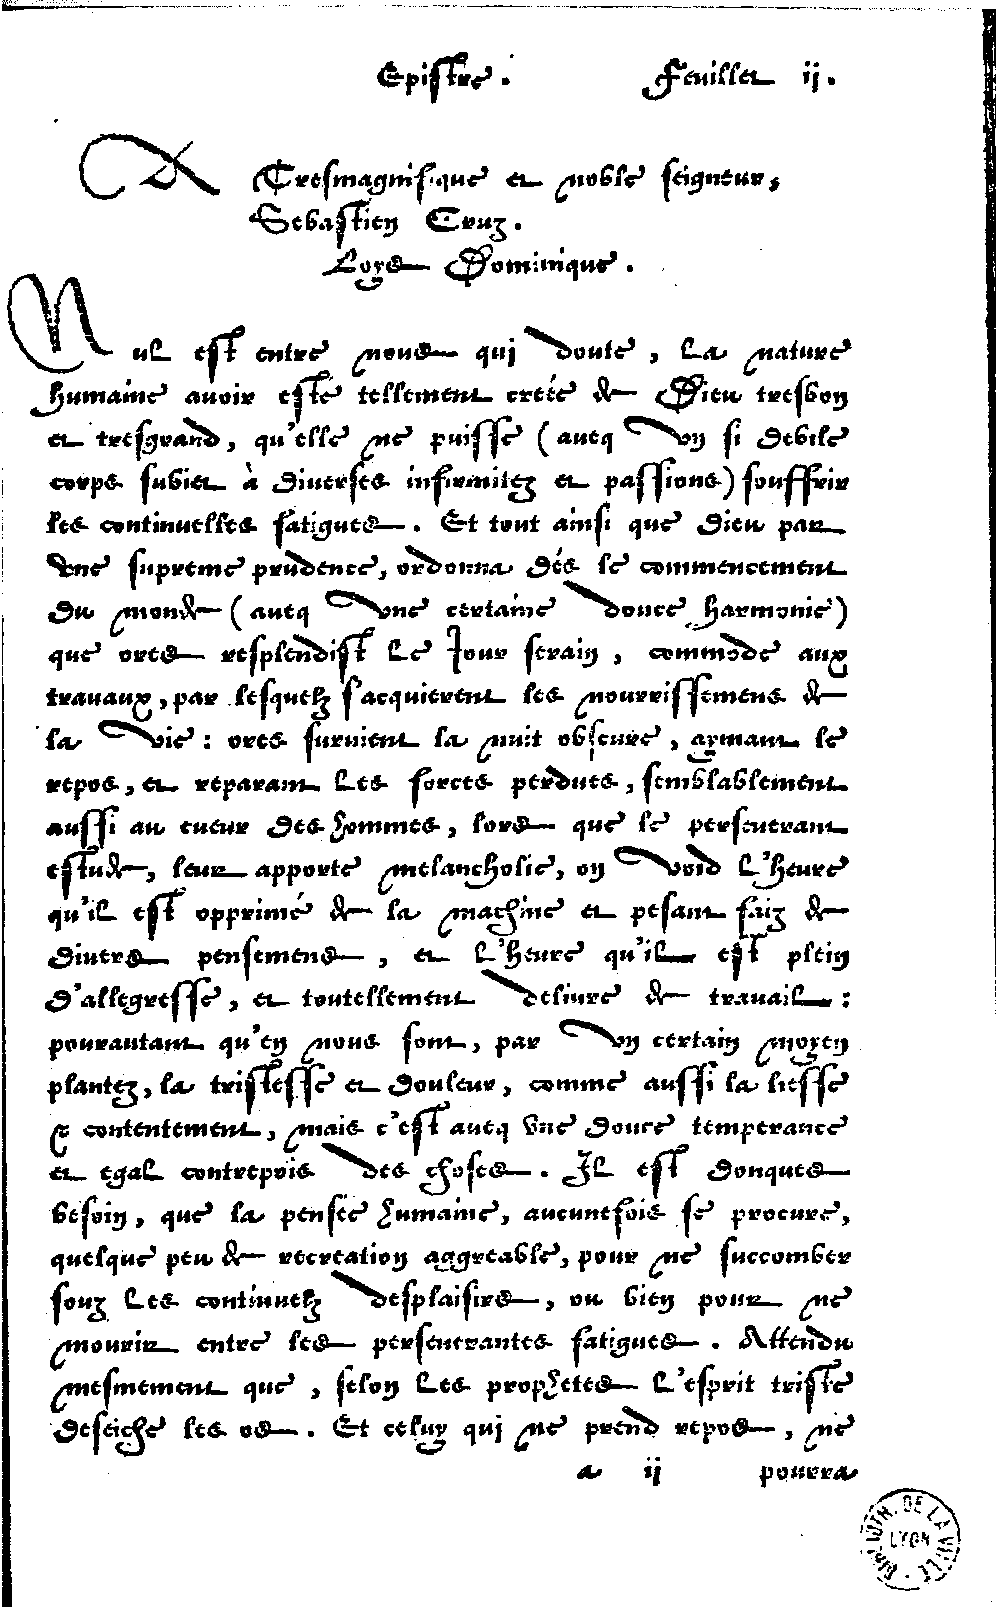 Epistre. Feuillet ij.
A Tresmagnifique et noble seigneur,
Sebastien Cruz.
Loys Dominique.
Nul est entre nous qui doute, la nature
humaine avoir esté tellement creée de Dieu tresbon
et tresgrand, qu'elle ne puisse (aueq vn si debile
corps subiet à diuerses infirmitez et passions) souffrir
les continuelles fatigues. Et tout ainsi que Dieu par
vne supreme prudence, ordonna dés le commencement
du monde (aueq vne certaine douce harmonie)
que ores resplendist le Jour serain, commode aux
travaux, par lesquelz s'acquierent les nourrissemens de
la vie: ores suruient la nuit obscure, aymant le
repos, et reparant les forces perdues, semblablement
aussi au cueur des hommes, lors que le perseuerant
estude, leur apporte melancholie, on void l'heure
qu'il est opprimé de la machine et pesant faiz de
divers pensemens, et l'heure qu'il est plein
d'allegresse, et toutellement deliure de travail:
pourautant qu'en nous sont, par vn certain moyen
plantez, la tristesse et douleur, comme aussi la liesse
& contentement, mais c'est aueq vne douce temperance
et egal contrepois des choses. Il est donques
besoin, que la pensée humaine, aucunefois se procure,
quelque peu de recreation aggreable, pour ne succomber
souz les continuelz desplaisirs, ou bien pour ne
mourir entre les perseuerantes fatigues. Attendu
mesmement que, selon les prophetes l'esprit triste
deseiche les os. Et celuy qui ne prend repos, ne
a ij pourra
BIBLIOTH. DE LA VILLE
LYON